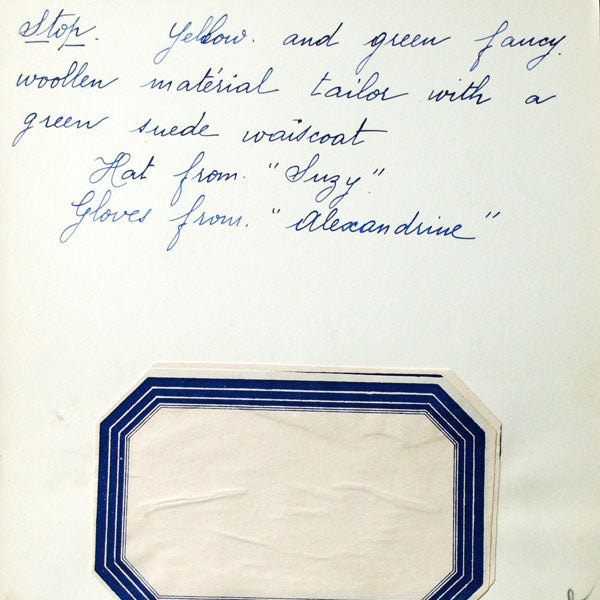 Stop. Yellow. and green fancy.
woollen matérial tailor with a
green suede waiscoat
Hat from. "Suzy".
Gloves from. "Alexandrine"